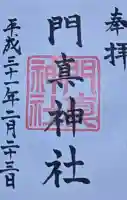 奉拝
門真神社
平成三十一年二月二十三日
門真
神社